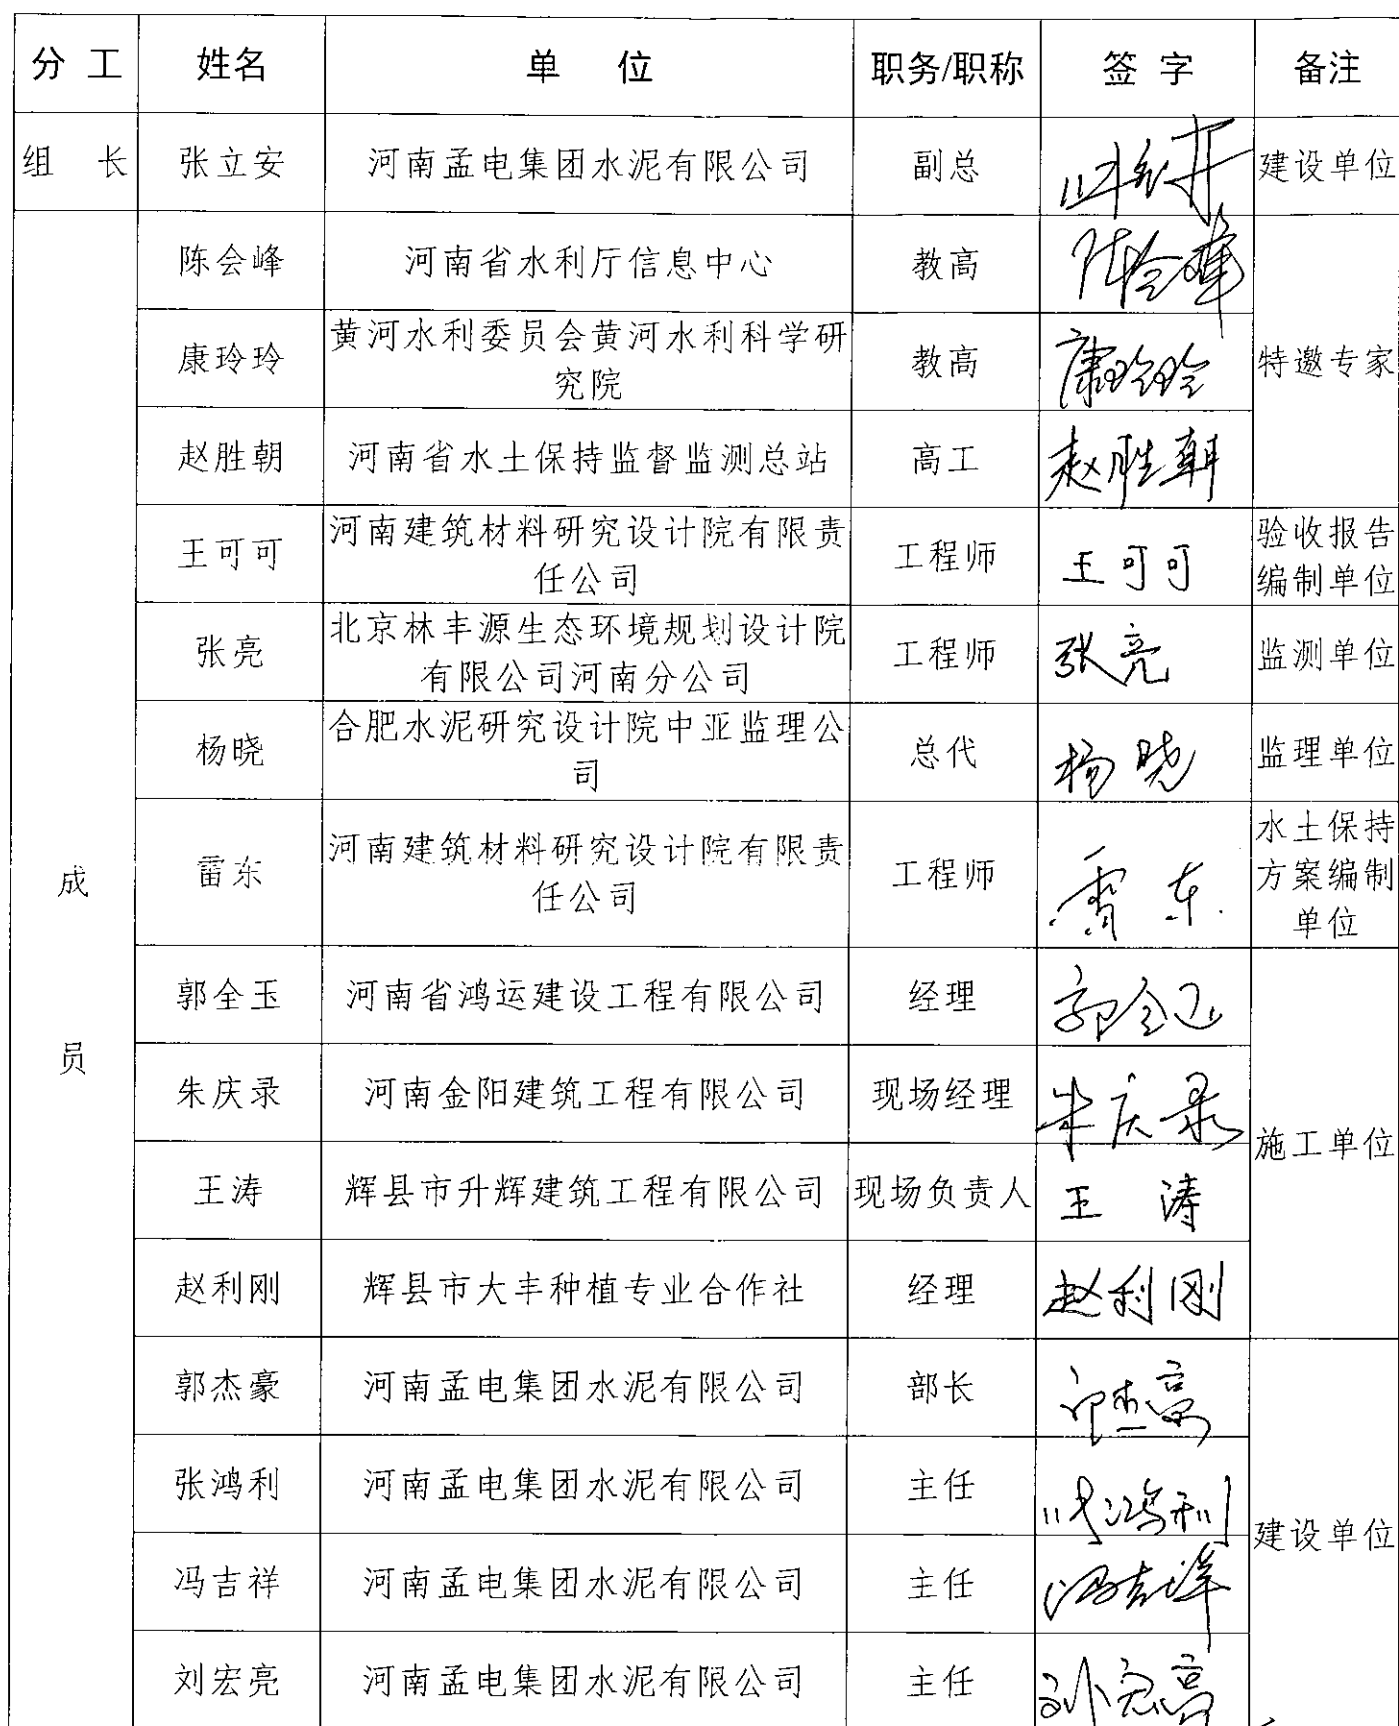 分 工 姓名 单 位 职务/职称 签 字 备注
组 长 张立安 河南孟电集团水泥有限公司 副总 建设单位
陈会峰 河南省水利厅信息中心 教高 陈会峰
康玲玲 黄河水利委员会黄河水利科学研
究院 教高 康玲玲 特邀专家
赵胜朝 河南省水土保持监督监测总站 高工 赵胜朝
王可可 河南建筑材料研究设计院有限责
任公司 工程师 王可可 验收报告
编制单位
张亮 北京林丰源生态环境规划设计院
有限公司河南分公司 工程师 张亮 监测单位
杨晓 合肥水泥研究设计院中亚监理公
司 总代 杨晓 监理单位
成
员
雷东 河南建筑材料研究设计院有限责
任公司 工程师 雷东 水土保持
方案编制
单位
郭全玉 河南省鸿运建设工程有限公司 经理 郭全玉
朱庆录 河南金阳建筑工程有限公司 现场经理 朱庆录
施工单位
王涛 辉县市升辉建筑工程有限公司 现场负责人 王涛
赵利刚 辉县市大丰种植专业合作社 经理 赵利刚
郭杰豪 河南孟电集团水泥有限公司 部长 郭杰豪
张鸿利 河南孟电集团水泥有限公司 主任 张鸿利
建设单位
冯吉祥 河南孟电集团水泥有限公司 主任 冯吉祥
刘宏亮 河南孟电集团水泥有限公司 主任 刘宏亮